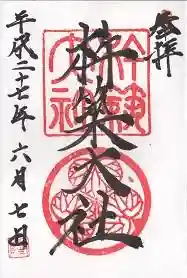 奉拝
杵築大社
平成二十七年六月七日